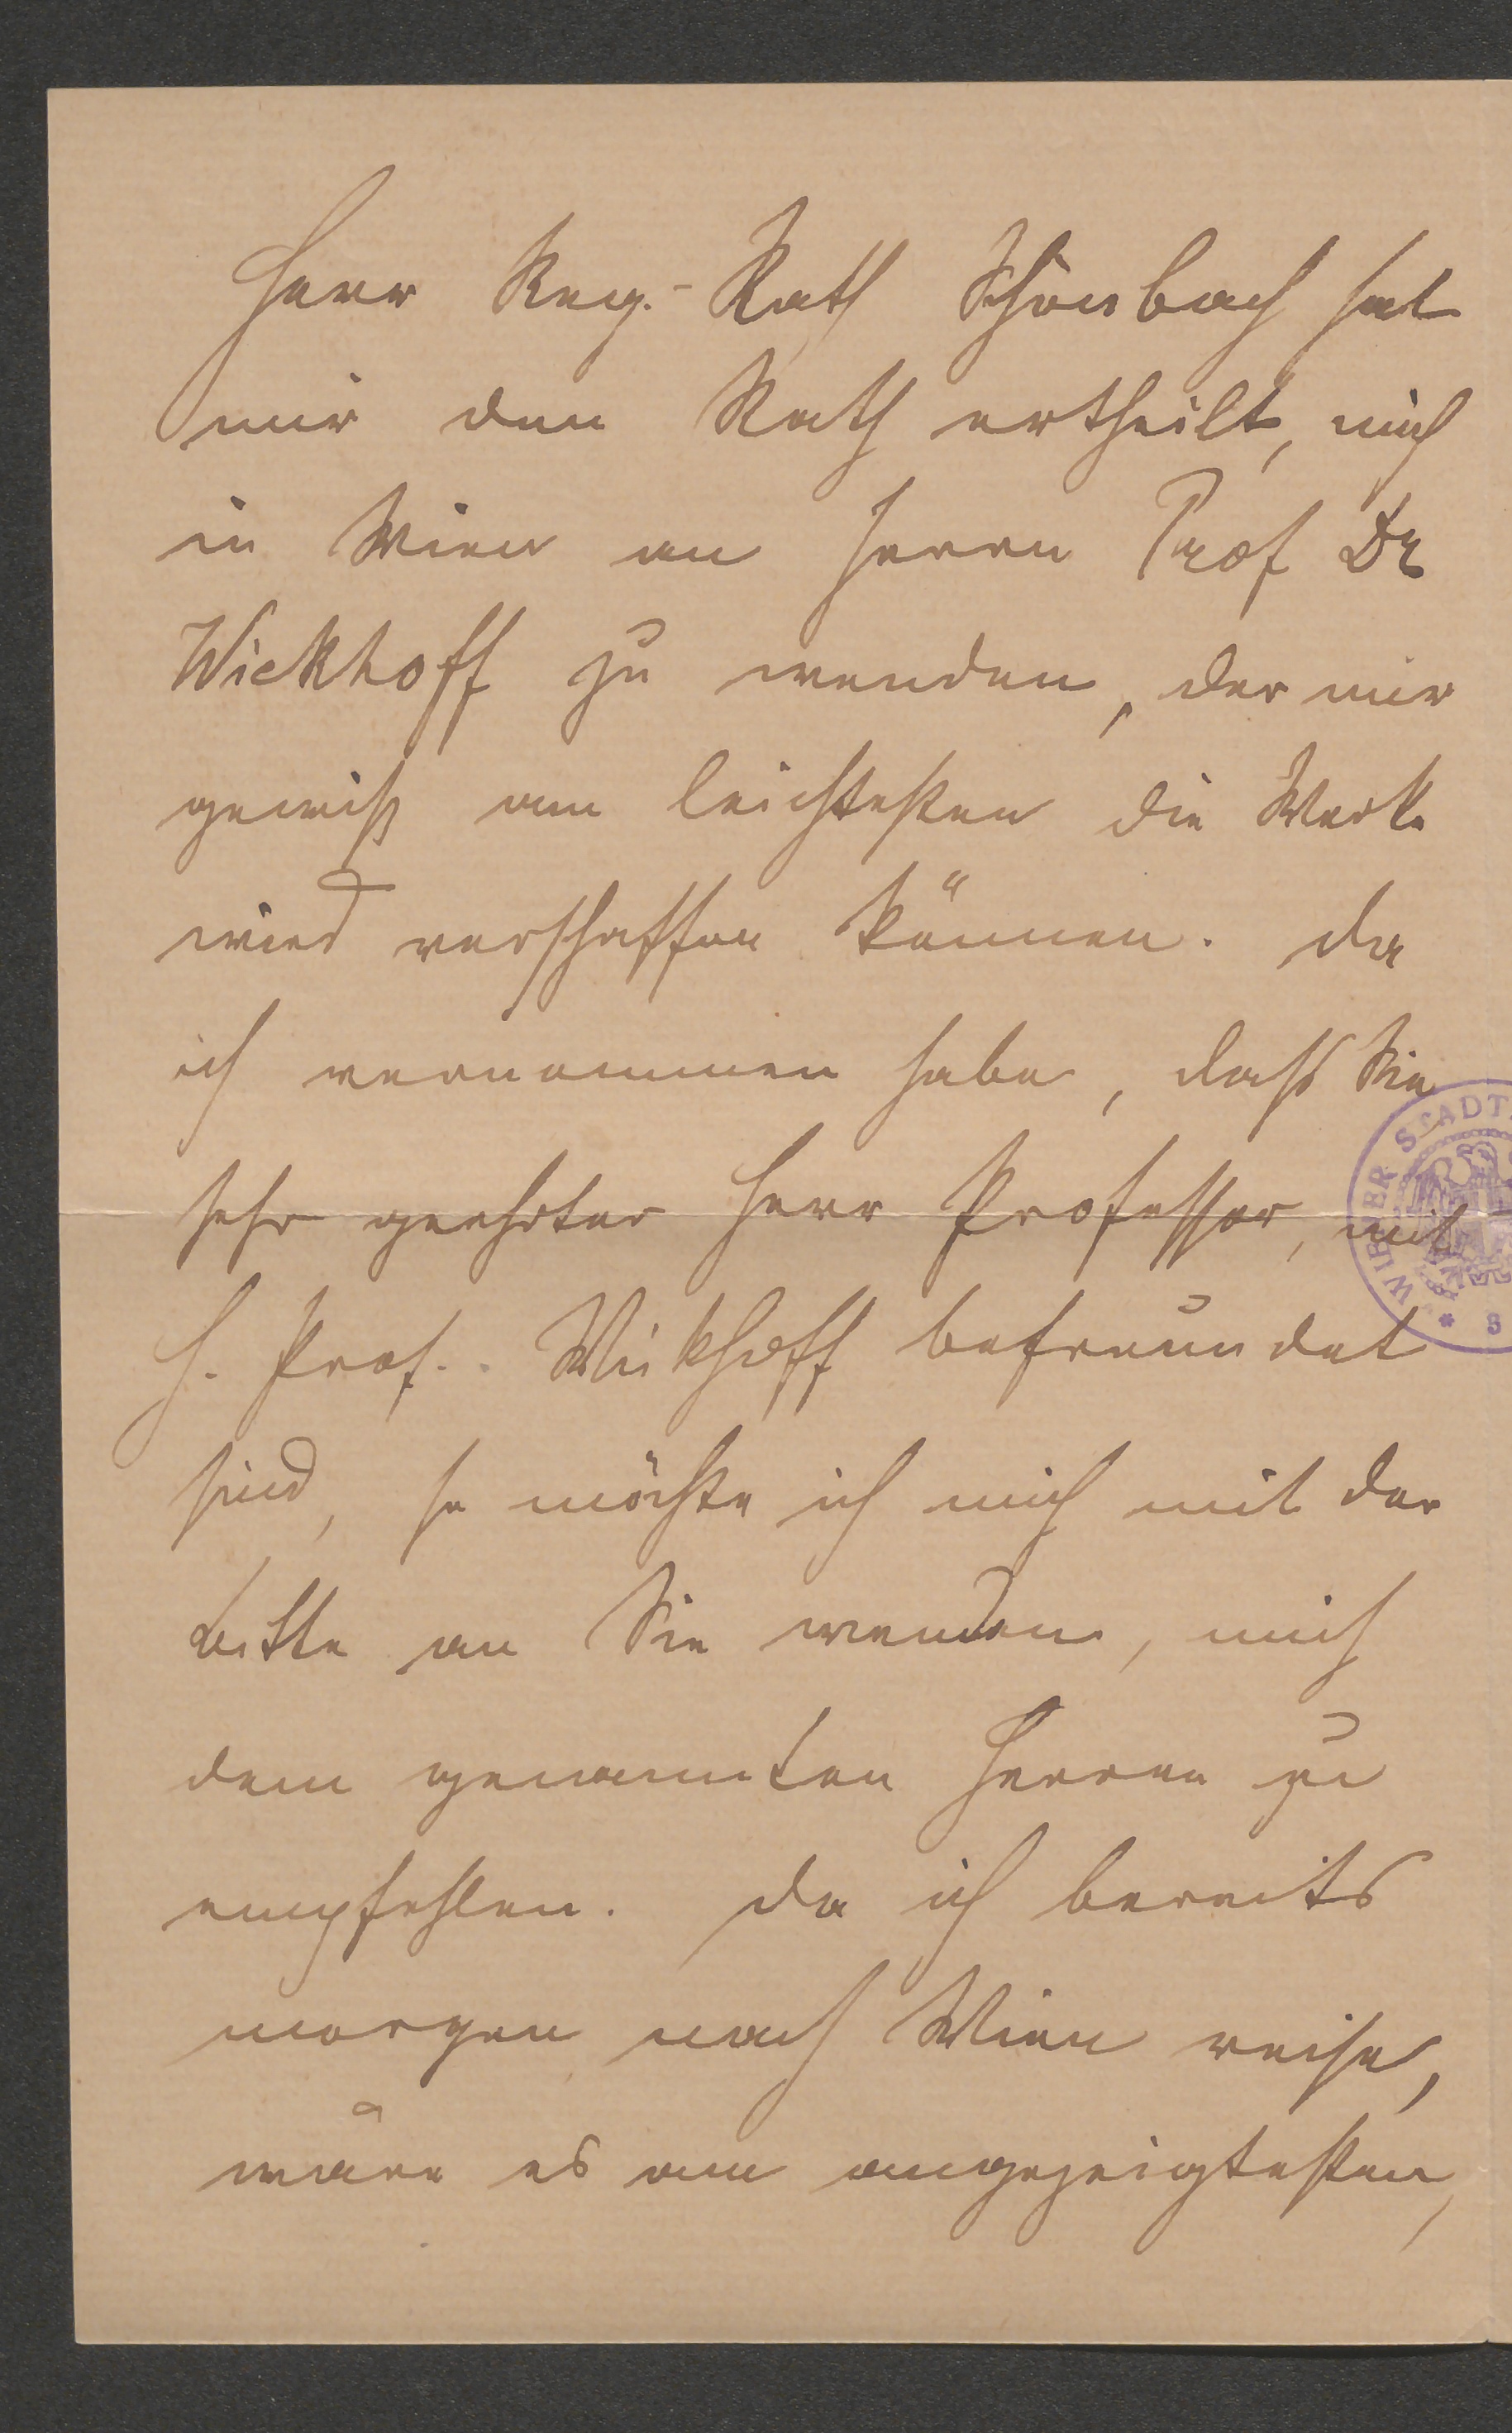 Herr Reg.-Rath Schönbach hat
mir den Rath ertheilt, mich
in Wien an Herrn Prof Dr
Wickhoff zu wenden, der mir
gewiß am leichtesten die Werke
wird verschaffen können. Da
ich vernommen habe, dass Sie
sehr geehrter Herr Professor, mit
H. Prof. Wickhoff befreundet
sind, so möchte ich mich mit der
Bitte an Sie wenden, mich
dem genannten Herren zu
empfehlen. Da ich bereits
morgen nach Wien reise,
wäre es am angezeigtesten,
WIENER STADT